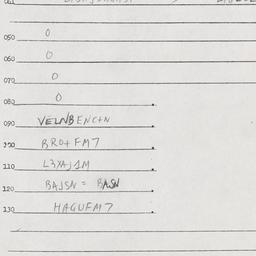 050 0
060 0
070 0
080 0
090 VELNBENC+N
100 BRO+FM7
110 L3YAJ1M
120 BAJSN = BASN
130 HAGUFM7